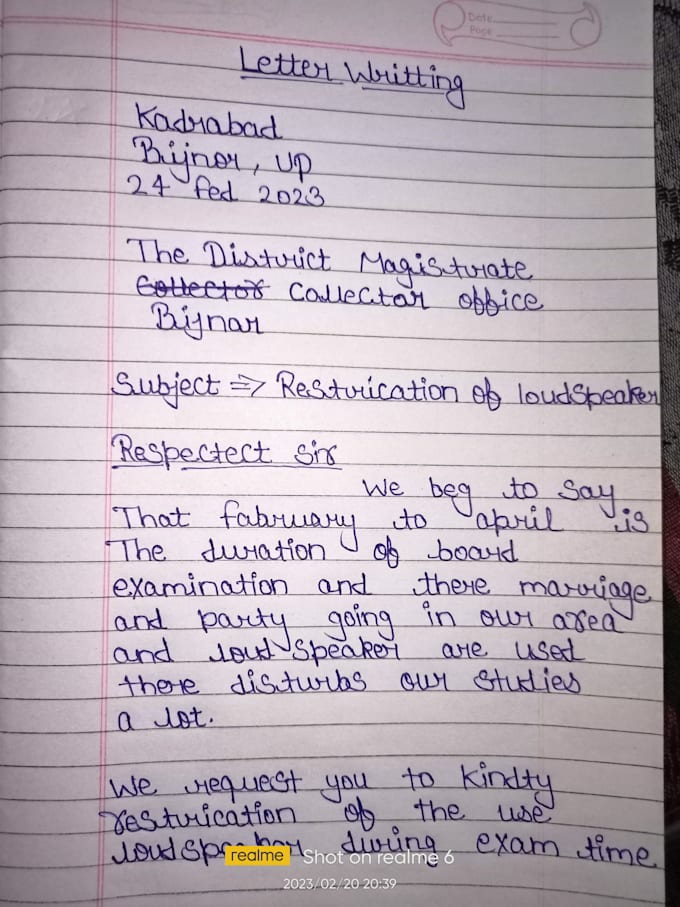 Date
Page
Letter Writting
Kadrabad
Bijnor, UP
24 fed 2023
The District Magistrate
Collector Collector office
Bijnor
Subject => Restrication of loudspeaker
Respectect Sir
We beg to say
That fabruary to april is
The duration of board
examination and there marriage
and party going in our area
and loud speaker are used
there disturbs our studies
a lot.
We request you to kindty
restrication of the use
loudspeaker during exam time
realme Shot on realme 6
2023/02/20 20:39